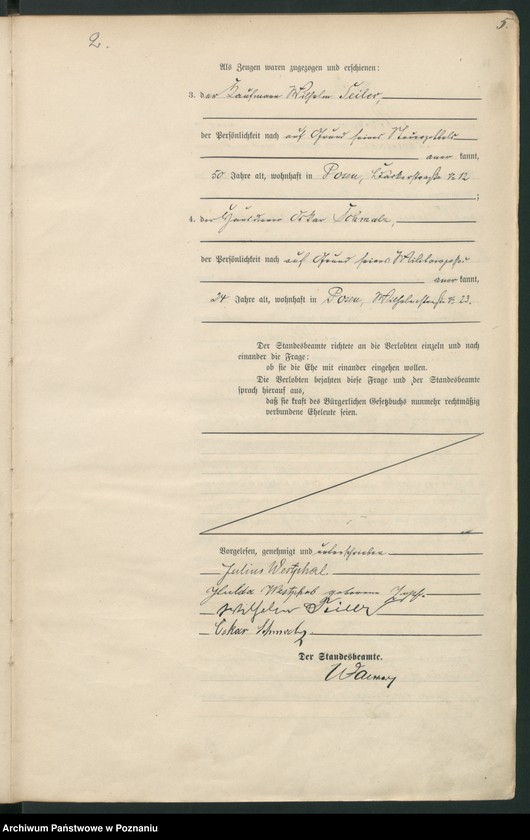 2.
5.
Als Zeugen waren zugezogen und erschienen:
3. der Kaufmann Wilhelm Seiler,
der Persönlichkeit nach auf Grund seines Steuerzettels
aner kannt,
50 Jahre alt, wohnhaft in Posen, Bäckerstraße № 12
;
4. der Hausdiener Oskar Schmalz,
der Persönlichkeit nach auf Grund seines Militärpasses
aner kannt,
24 Jahre alt, wohnhaft in Posen, Wilhelmstraße № 23.
Der Standesbeamte richtete an die Verlobten einzeln und nach
einander die Frage:
ob sie die Ehe mit einander eingehen wollen.
Die Verlobten bejahten diese Frage und der Standesbeamte
sprach hierauf aus,
daß sie kraft des Bürgerlichen Gesetzbuchs nunmehr rechtmäßig
verbundene Eheleute seien.
Vorgelesen, genehmigt und unterschrieben
Julius Westphal
Hulda Westphal geborene
Wilhelm Seiler
Oskar Schmalz
Der Standesbeamte.
Archiwum Państwowe w Poznaniu